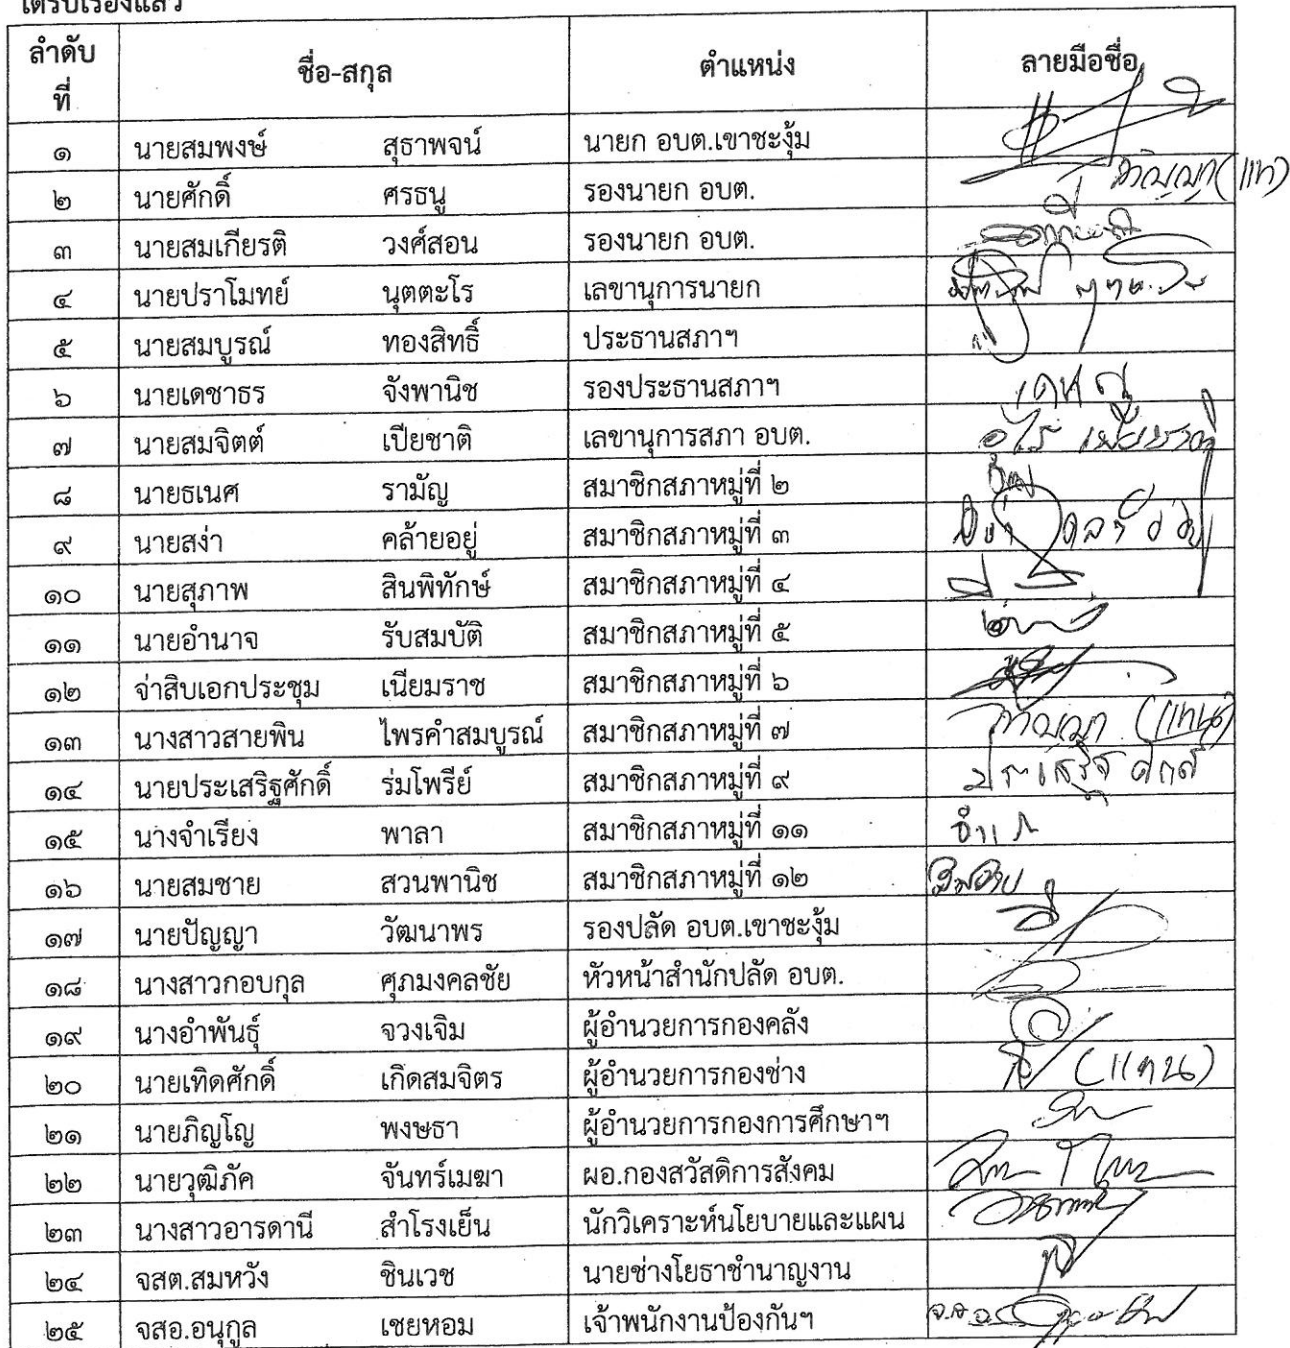 ได้รับเรื่องแล้ว
ลำดับที่ ชื่อ-สกุล ตำแหน่ง ลายมือชื่อ
๑ นายสมพงษ์ สุธาพจน์ นายก อบต.เขาชะงุ้ม
๒ นายศักดิ์ ศรธนู รองนายก อบต. (แทน)
๓ นายสมเกียรติ วงศ์สอน รองนายก อบต.
๔ นายปราโมทย์ นุตตะโร เลขานุการนายก
๕ นายสมบูรณ์ ทองสิทธิ์ ประธานสภาฯ
๖ นายเดชาธร จังพานิช รองประธานสภาฯ
๗ นายสมจิตต์ เปียชาติ เลขานุการสภา อบต.
๘ นายธเนศ รามัญ สมาชิกสภาหมู่ที่ ๒
๙ นายสง่า คล้ายอยู่ สมาชิกสภาหมู่ที่ ๓
๑๐ นายสุภาพ สินพิทักษ์ สมาชิกสภาหมู่ที่ ๔
๑๑ นายอำนาจ รับสมบัติ สมาชิกสภาหมู่ที่ ๕
๑๒ จ่าสิบเอกประชุม เนียมราช สมาชิกสภาหมู่ที่ ๖
๑๓ นางสาวสายพิน ไพรคำสมบูรณ์ สมาชิกสภาหมู่ที่ ๗ (แทน)
๑๔ นายประเสริฐศักดิ์ ร่มโพรีย์ สมาชิกสภาหมู่ที่ ๙ ประเสริฐศักดิ์
๑๕ นางจำเรียง พาลา สมาชิกสภาหมู่ที่ ๑๑
๑๖ นายสมชาย สวนพานิช สมาชิกสภาหมู่ที่ ๑๒ สมชาย
๑๗ นายปัญญา วัฒนาพร รองปลัด อบต.เขาชะงุ้ม
๑๘ นางสาวกอบกุล ศุภมงคลชัย หัวหน้าสำนักปลัด อบต.
๑๙ นางอำพันธุ์ จวงเจิม ผู้อำนวยการกองคลัง
๒๐ นายเทิดศักดิ์ เกิดสมจิตร ผู้อำนวยการกองช่าง (แทน)
๒๑ นายภิญโญ พงษธา ผู้อำนวยการกองการศึกษาฯ
๒๒ นายวุฒิภัค จันทร์เมฆา ผอ.กองสวัสดิการสังคม
๒๓ นางสาวอารดานี สำโรงเย็น นักวิเคราะห์นโยบายและแผน
๒๔ จสต.สมหวัง ชินเวช นายช่างโยธาชำนาญงาน
๒๕ จสอ.อนุกูล เชยหอม เจ้าพนักงานป้องกันฯ